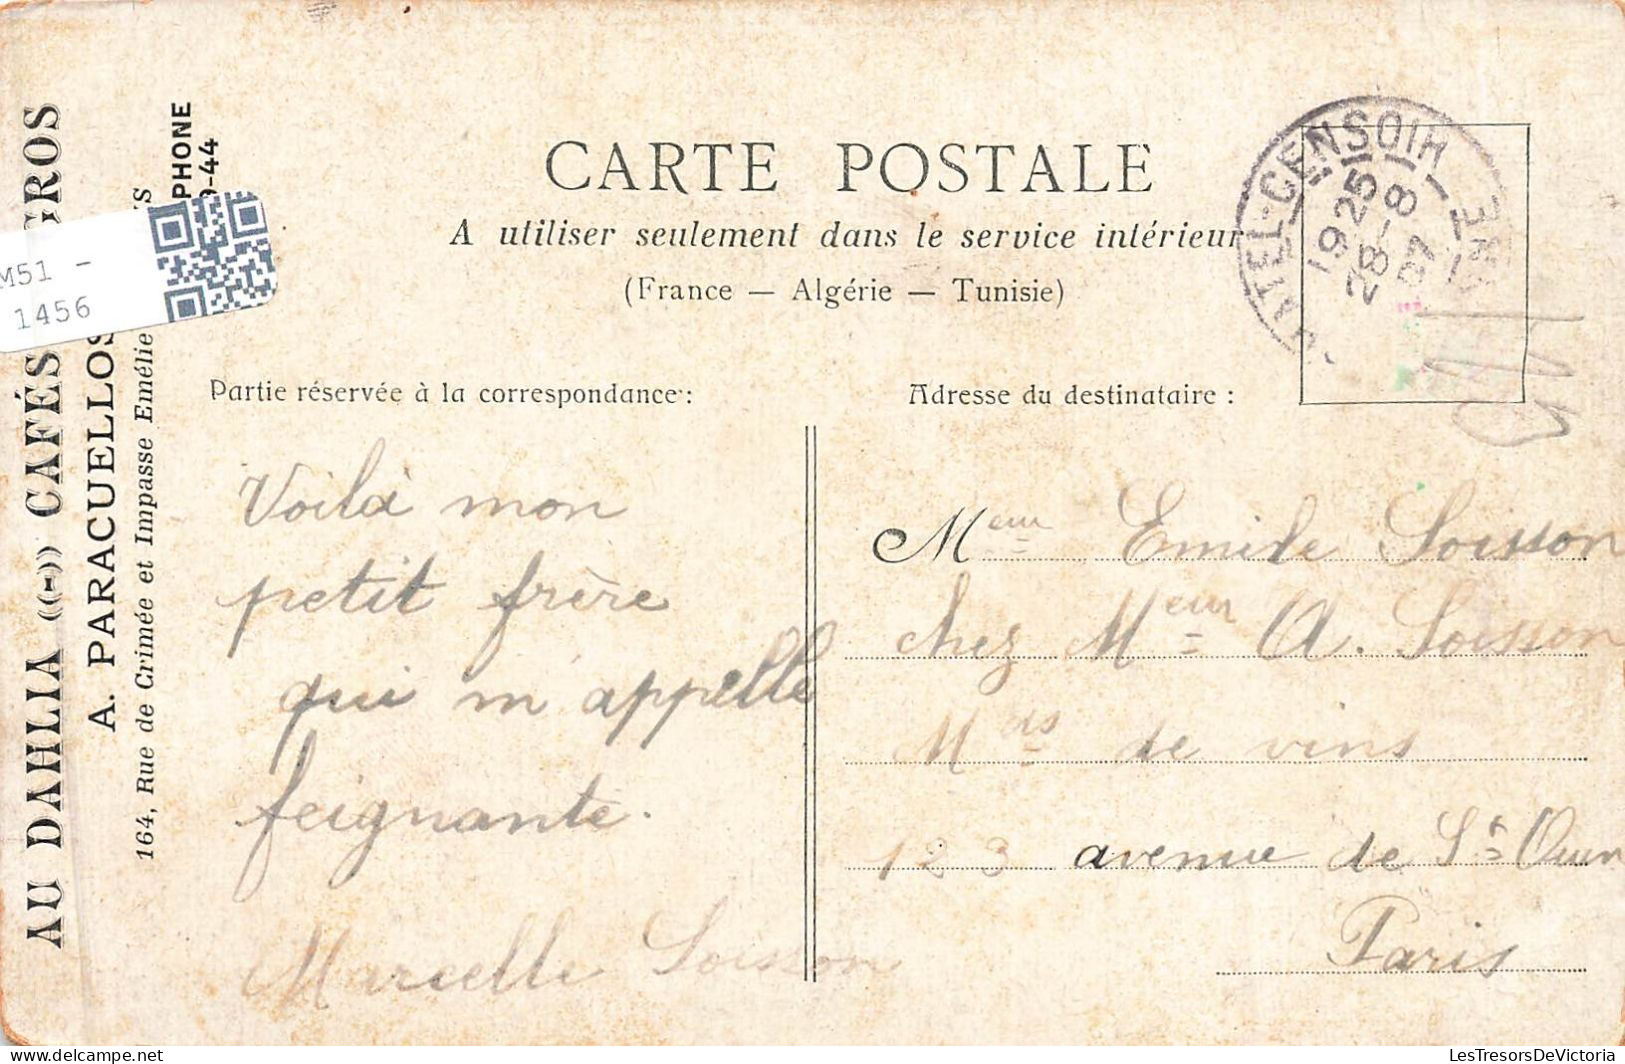 CARTE POSTALE
A utiliser seulement dans le service intérieur
(France — Algérie — Tunisie)
Partie réservée à la correspondance :
Adresse du destinataire :
Voilà mon
petit frère
qui m'appelle
feignante.
Marcelle Soisson
Meur Emile Soisson
chez Meur A. Soisson
Mds de vins
123 avenue de St Ouen
Paris
CENSOIR
1925
28-8
07
AU DAHLIA CAFÉS GROS
A. PARACUELLOS
164, Rue de Crimée et Impasse Emélie
PHONE
-44
M51 -
1456
LesTresorsDeVictoria
delcampe.net